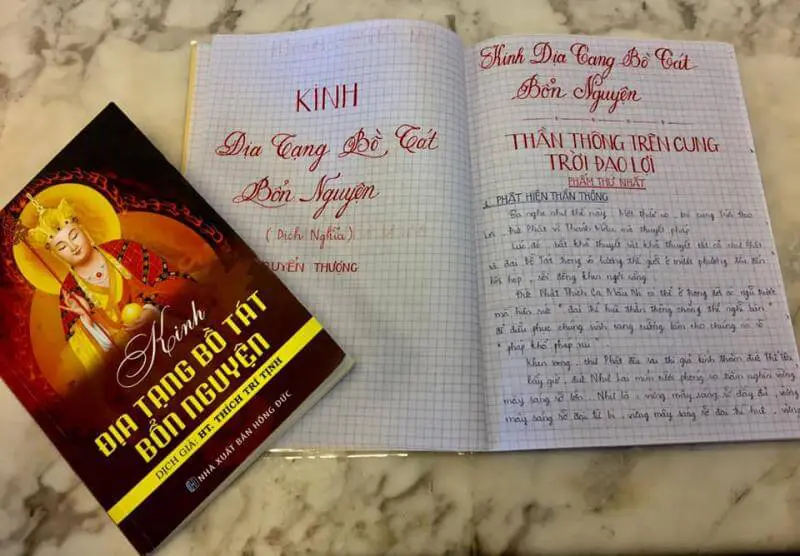 Kinh
ĐỊA TẠNG BỒ TÁT
BỔN NGUYỆN
DỊCH GIẢ: HT. THÍCH TRÍ TỊNH
NHÀ XUẤT BẢN HỒNG ĐỨC
KINH
Địa Tạng Bồ Tát
Bổn Nguyện
( Dịch Nghĩa )
QUYỂN THƯỢNG
Kinh Địa Tạng Bồ Tát
Bổn Nguyện
THẦN THÔNG TRÊN CUNG
TRỜI ĐẠO LỢI
PHẨM THỨ NHẤT
1. PHẬT HIỆN THẦN THÔNG
Ta nghe như thế này. Một thuở nọ, tại cung Trời Đao
Lợi, Phật vì Thánh Mẫu mà thuyết pháp
Lúc đó, bất khả thuyết bất khả thuyết tất cả chư Phật
và đại Bồ Tát trong vô lượng thế giới ở mười phương đều đến
hội họp
Đức Phật Thích Ca Mâu Ni có thể ở trong đời ác ngũ trược
mà hiện sức " đại trí huệ thần thông chẳng thể nghĩ bàn "
để điều phục chúng sinh cang cường làm cho chúng nó rõ
" pháp khổ pháp vui "
Khen xong, chư Phật đều sai thị giả kính thăm đức Thế Tôn
Bấy giờ, đức Như Lai mỉm cười phóng ra trăm nghìn vầng
mây sáng rỡ lớn. Như là : vầng mây sáng rỡ đầy đủ, vầng
mây sáng rỡ đại từ bi, vầng mây sáng rỡ đại trí huệ, vầng